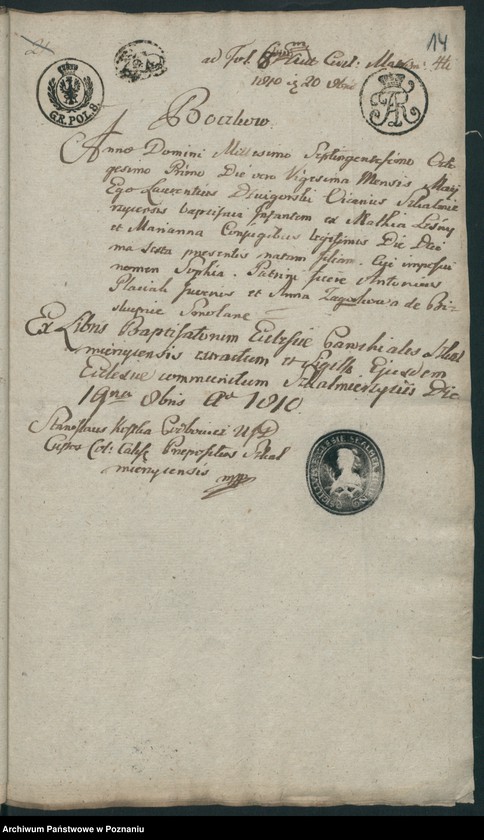 14
ad Fol.
1810 d 20 8bris
GR. POL. 8.
Bochow.
Anno Domini Millesimo Septingentesimo Octo
gesimo Primo Die vero Vigesima Mensis Maij
Ego Laurentius Vicarius Skalmie
rzycensis baptisavi Infantem ex Mathia Leśny
et Marianna Conjugibus legitimis Die Deci
ma Sexta presentis natam filiam. Cui imposui
nomen Sophia. Patrini fuere Antonius
Juvenis et Anna de Bi
skupice
Ex Libris Baptisatorum Ecclesiae Parochialis Skal
mierzycensis extractum et Sigillo Ejusdem
Ecclesiae communitum Skalmierzyciis Die
19na 8bris Ao 1810.
Stanislaus Kostka
Custos Col: Calis: Praepositus Skal
mierzycensis mpp